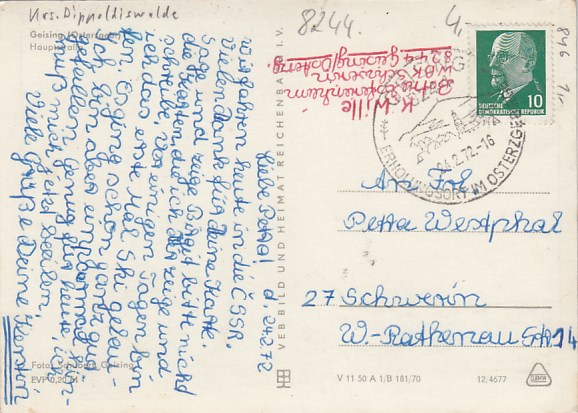 Krs. Dippoldiswalde
Geising (Osterzgeb.)
Hauptstraße
8244.
K. Wille
Betr. Ferienheim
WBK Schwerin
8244 Geising/Osterzg.
DEUTSCHE
DEMOKRATISCHE REPUBLIK
10
24.2.72-16
ERHOLUNGSORT IM OSTERZGEB
846
d. 24.2.72
Liebe Petra!
Wir fahren heute in die ČSSR.
Vielen Dank für Deine Karte.
Sage und zeige Birgit bitte nicht
die Karten, die ich Dir zeige und
schreibe. Vor einigen Tagen bin
ich das erste Mal Ski gelau-
fen. Es ging schon ganz gut.
Ich bin aber einpaarmal hin-
gefallen. Genug für heute, ich
muß mich jetzt beeilen,
Viele Grüße Deine Kerstin
An Frl.
Petra Westphal
27 Schwerin
W.-Rathenau Str. 14
VEB BILD UND HEIMAT REICHENBACH I. V.
Geising
EVP 0,20 M
V 11 50 A 1/B 181/70
12/4677